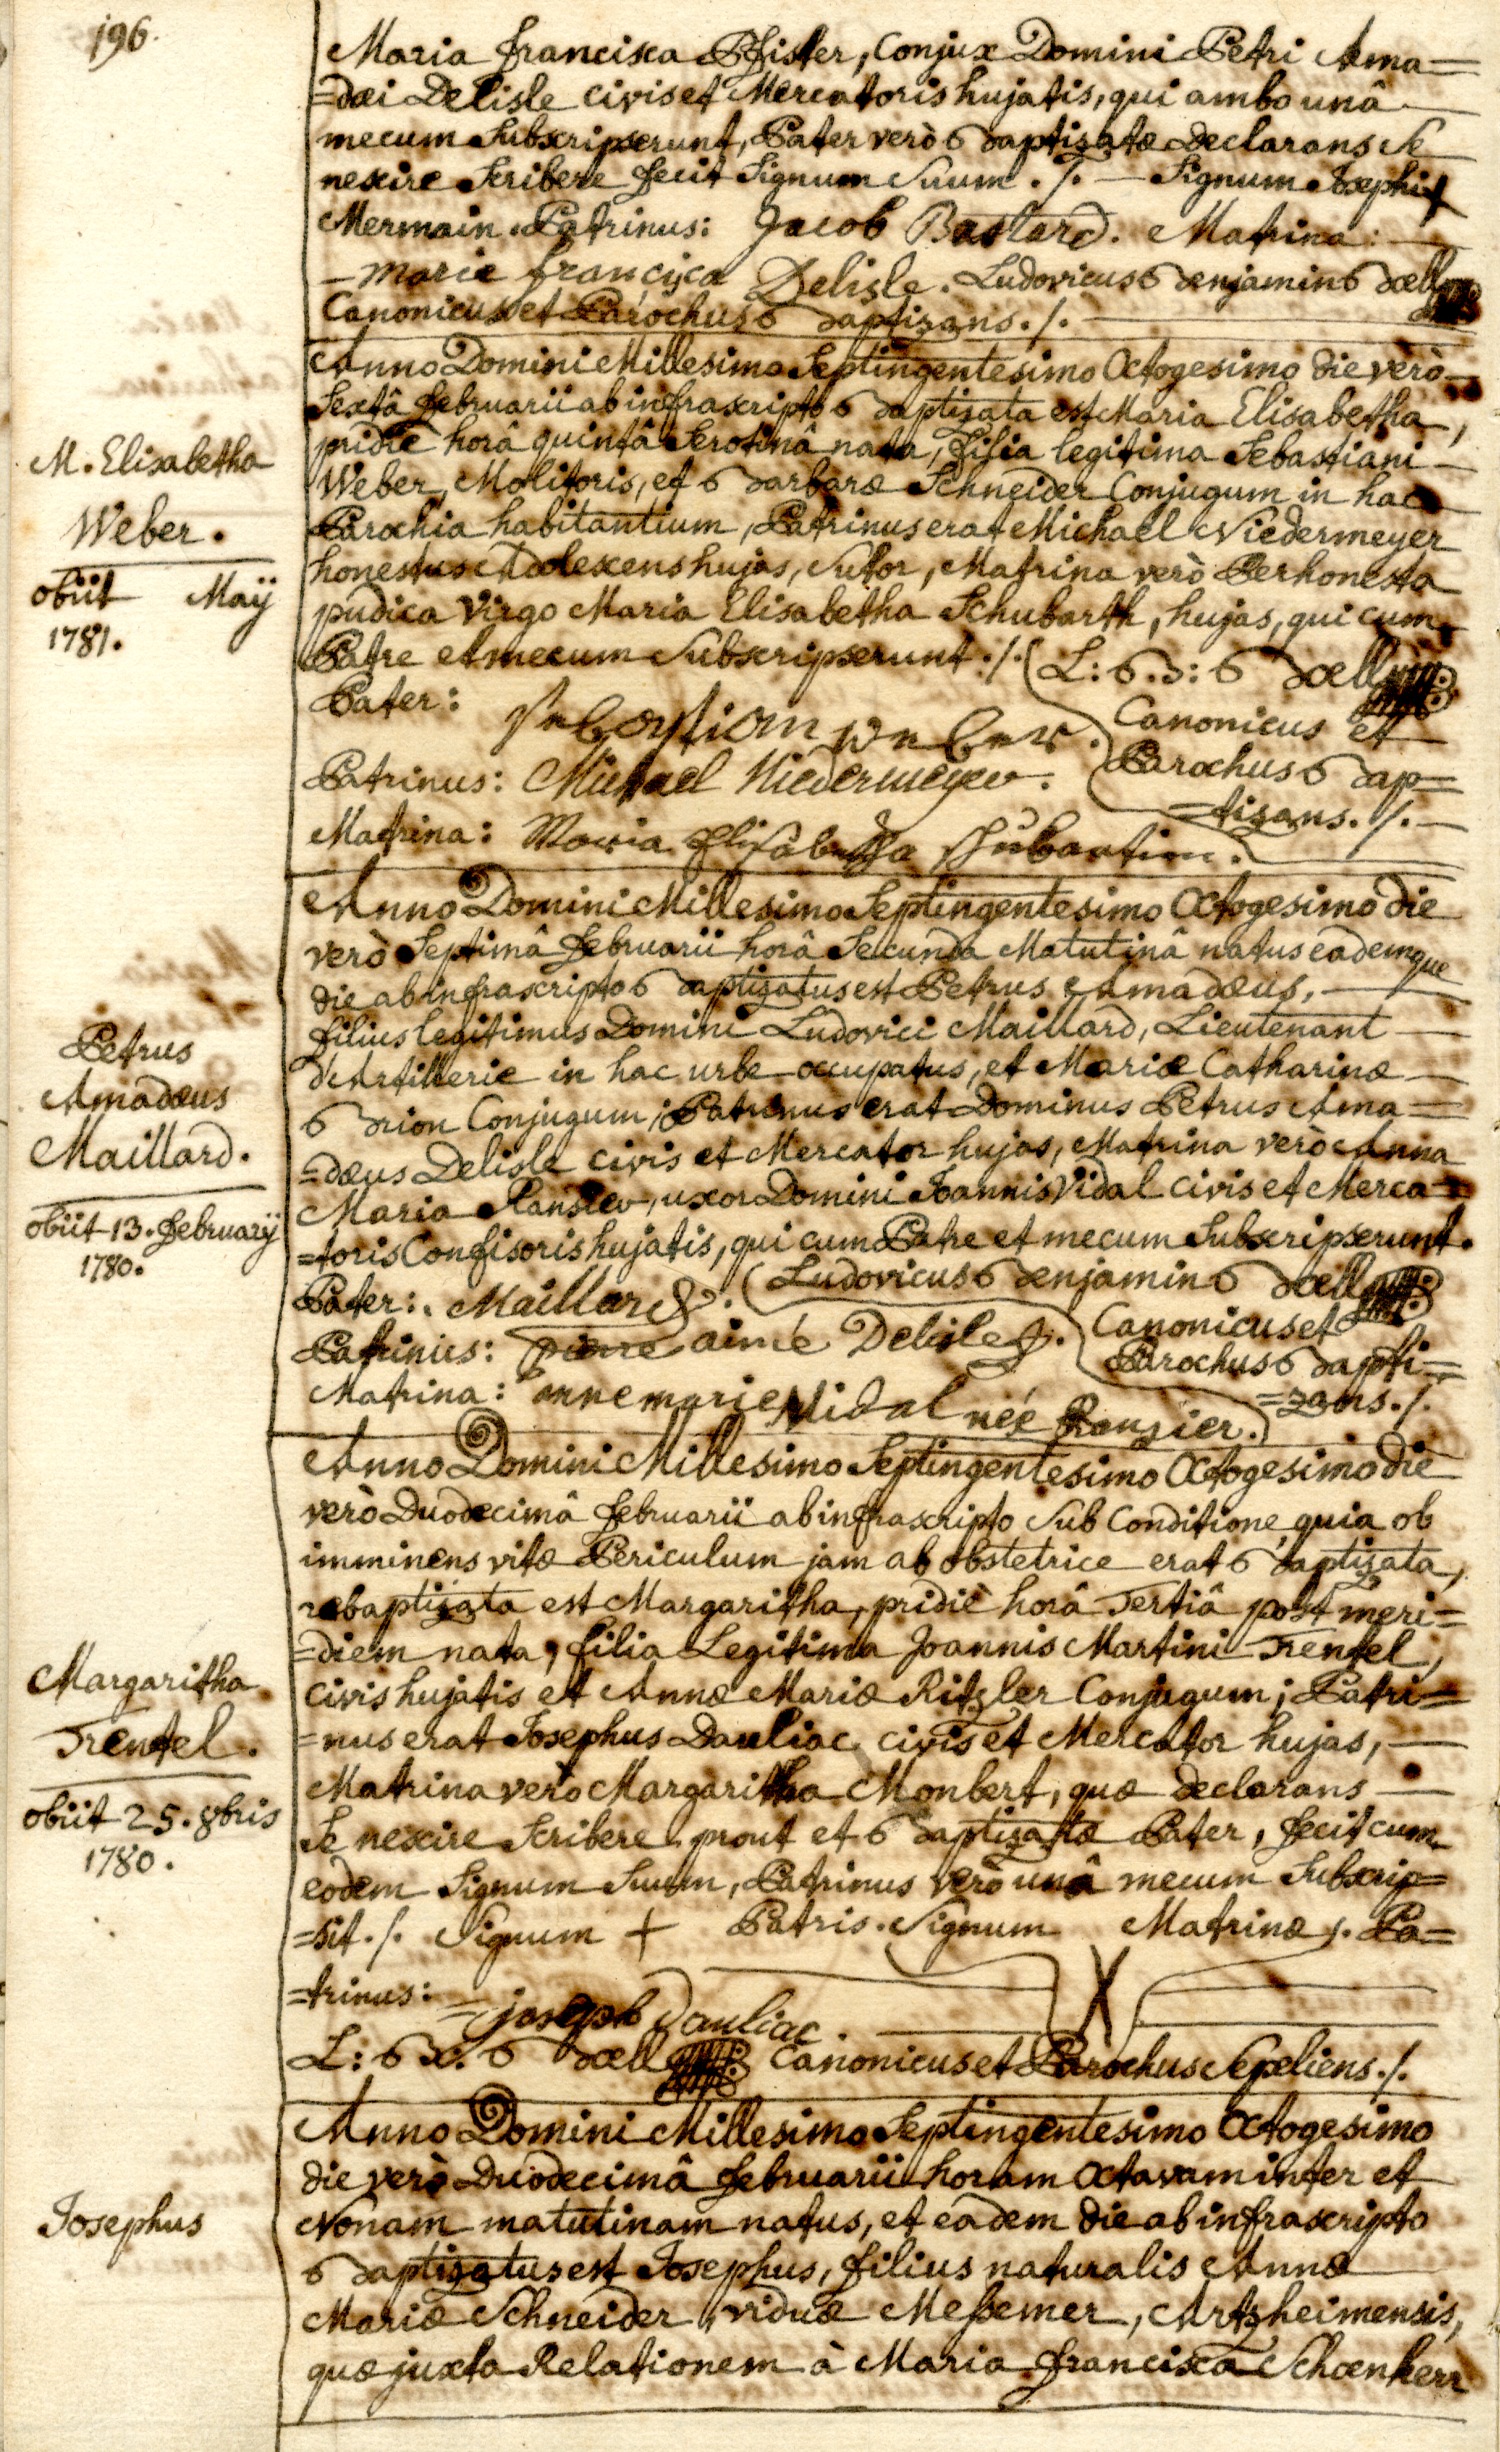 196.
Maria Francisca Pfister, Conjux Domini Petri Ama=
=dæi Delisle civis et Mercatoris hujatis, qui ambo unâ
mecum Subscripserunt, Pater verò Baptizatæ declarans se
nescire Scribere fecit Signum Suum ./. — Signum Josephi +
Mermain. Patrinus: Jacob Bastard. Matrina:
— marie francisca Delisle. Ludovicus Benjamin Bœll
Canonicus et Parochus Baptizans ./.
Anno Domini Millesimo Septingentesimo Octogesimo die verò
Sextâ Februarii ab infrascripto Baptizata est Maria Elisabetha,
pridiè horâ quintâ Serotinâ nata, filia legitima Sebastiani
Weber, Molitoris, et Barbaræ Schneider Conjugum in hac
Parochia habitantium, Patrinus erat Michael Niedermeyer
honestus Adolescens hujas, Sutor, Matrina verò Perhonesta
pudica Virgo Maria Elisabetha Schubarth, hujas, qui cum
Patre et mecum Subscripserunt ./. L: B: Bœll
Pater: Sebastian Weber. Canonicus et
Patrinus: Michael Niedermeyer. Parochus Bap=
=tizans. /.
Matrina: Maria Elisabetha Shubartin.
M. Elisabetha
Weber.
obiit Maÿ
1781.
Anno Domini Millesimo Septingentesimo Octogesimo die
verò Septimâ Februarii horâ Secunda Matutinâ natus eademque
die ab infrascripto Baptizatus est Petrus Amadæus,
filius legitimus Domini Ludovici Maillard, Lieutenant
d'Artillerie in hac urbe occupatus, et Mariæ Catharinæ
Brion Conjugum; Patrinus erat Dominus Petrus Ama=
=dæus Delisle civis et Mercator hujas, Matrina verò Anna
Maria Ransier, uxor Domini Joannis Vidal civis et Merca=
=toris Confisoris hujatis, qui cum Patre et mecum Subscripserunt.
Pater: Maillard. Ludovicus Benjamin Bœll
Patrinus: pierre aimé Delisle. Canonicus et
Parochus Bapti=
Matrina: anne marie Vidal neé Ransier. =zans. /.
Petrus
Amadæus
Maillard.
obiit 13. Februarÿ
1780.
Anno Domini Millesimo Septingentesimo Octogesimo die
verò Duodecimâ Februarii ab infrascripto Sub Conditione, quia ob
imminens vitæ Periculum jam ab obstetrice erat Baptizata,
rebaptizata est Margaritha, pridiè horâ Tertiâ post meri=
=diem nata, filia Legitima Joannis Martini Trentel,
civis hujatis et Annæ Mariæ Ritzler Conjugum; Patri=
=nus erat Josephus Dauliac civis et Mercator hujas,
Matrina verò Margaritha Monbert, quæ declarans
Se nescire Scribere, prout et Baptizatæ Pater, fecit cum
eodem Signum Suum, Patrinus verò unâ mecum Subscrip=
=sit ./. Signum + Patris. Signum X Matrinæ ./. Pa=
=trinus: joseph Dauliac.
L: B: Bœll Canonicus et Parochus Sepeliens ./.
Margaritha
Trentel.
obiit 25. 8bris
1780.
Anno Domini Millesimo Septingentesimo Octogesimo
die verò Duodecimâ Februarii horam Octavam inter et
Nonam matutinam natus, et eâdem die ab infrascripto
Baptizatus est Josephus, filius naturalis Annæ
Mariæ Schneider, viduæ Messemer, Artzheimensis,
quæ juxta Relationem à Maria Francisca Schœnherr
Josephus